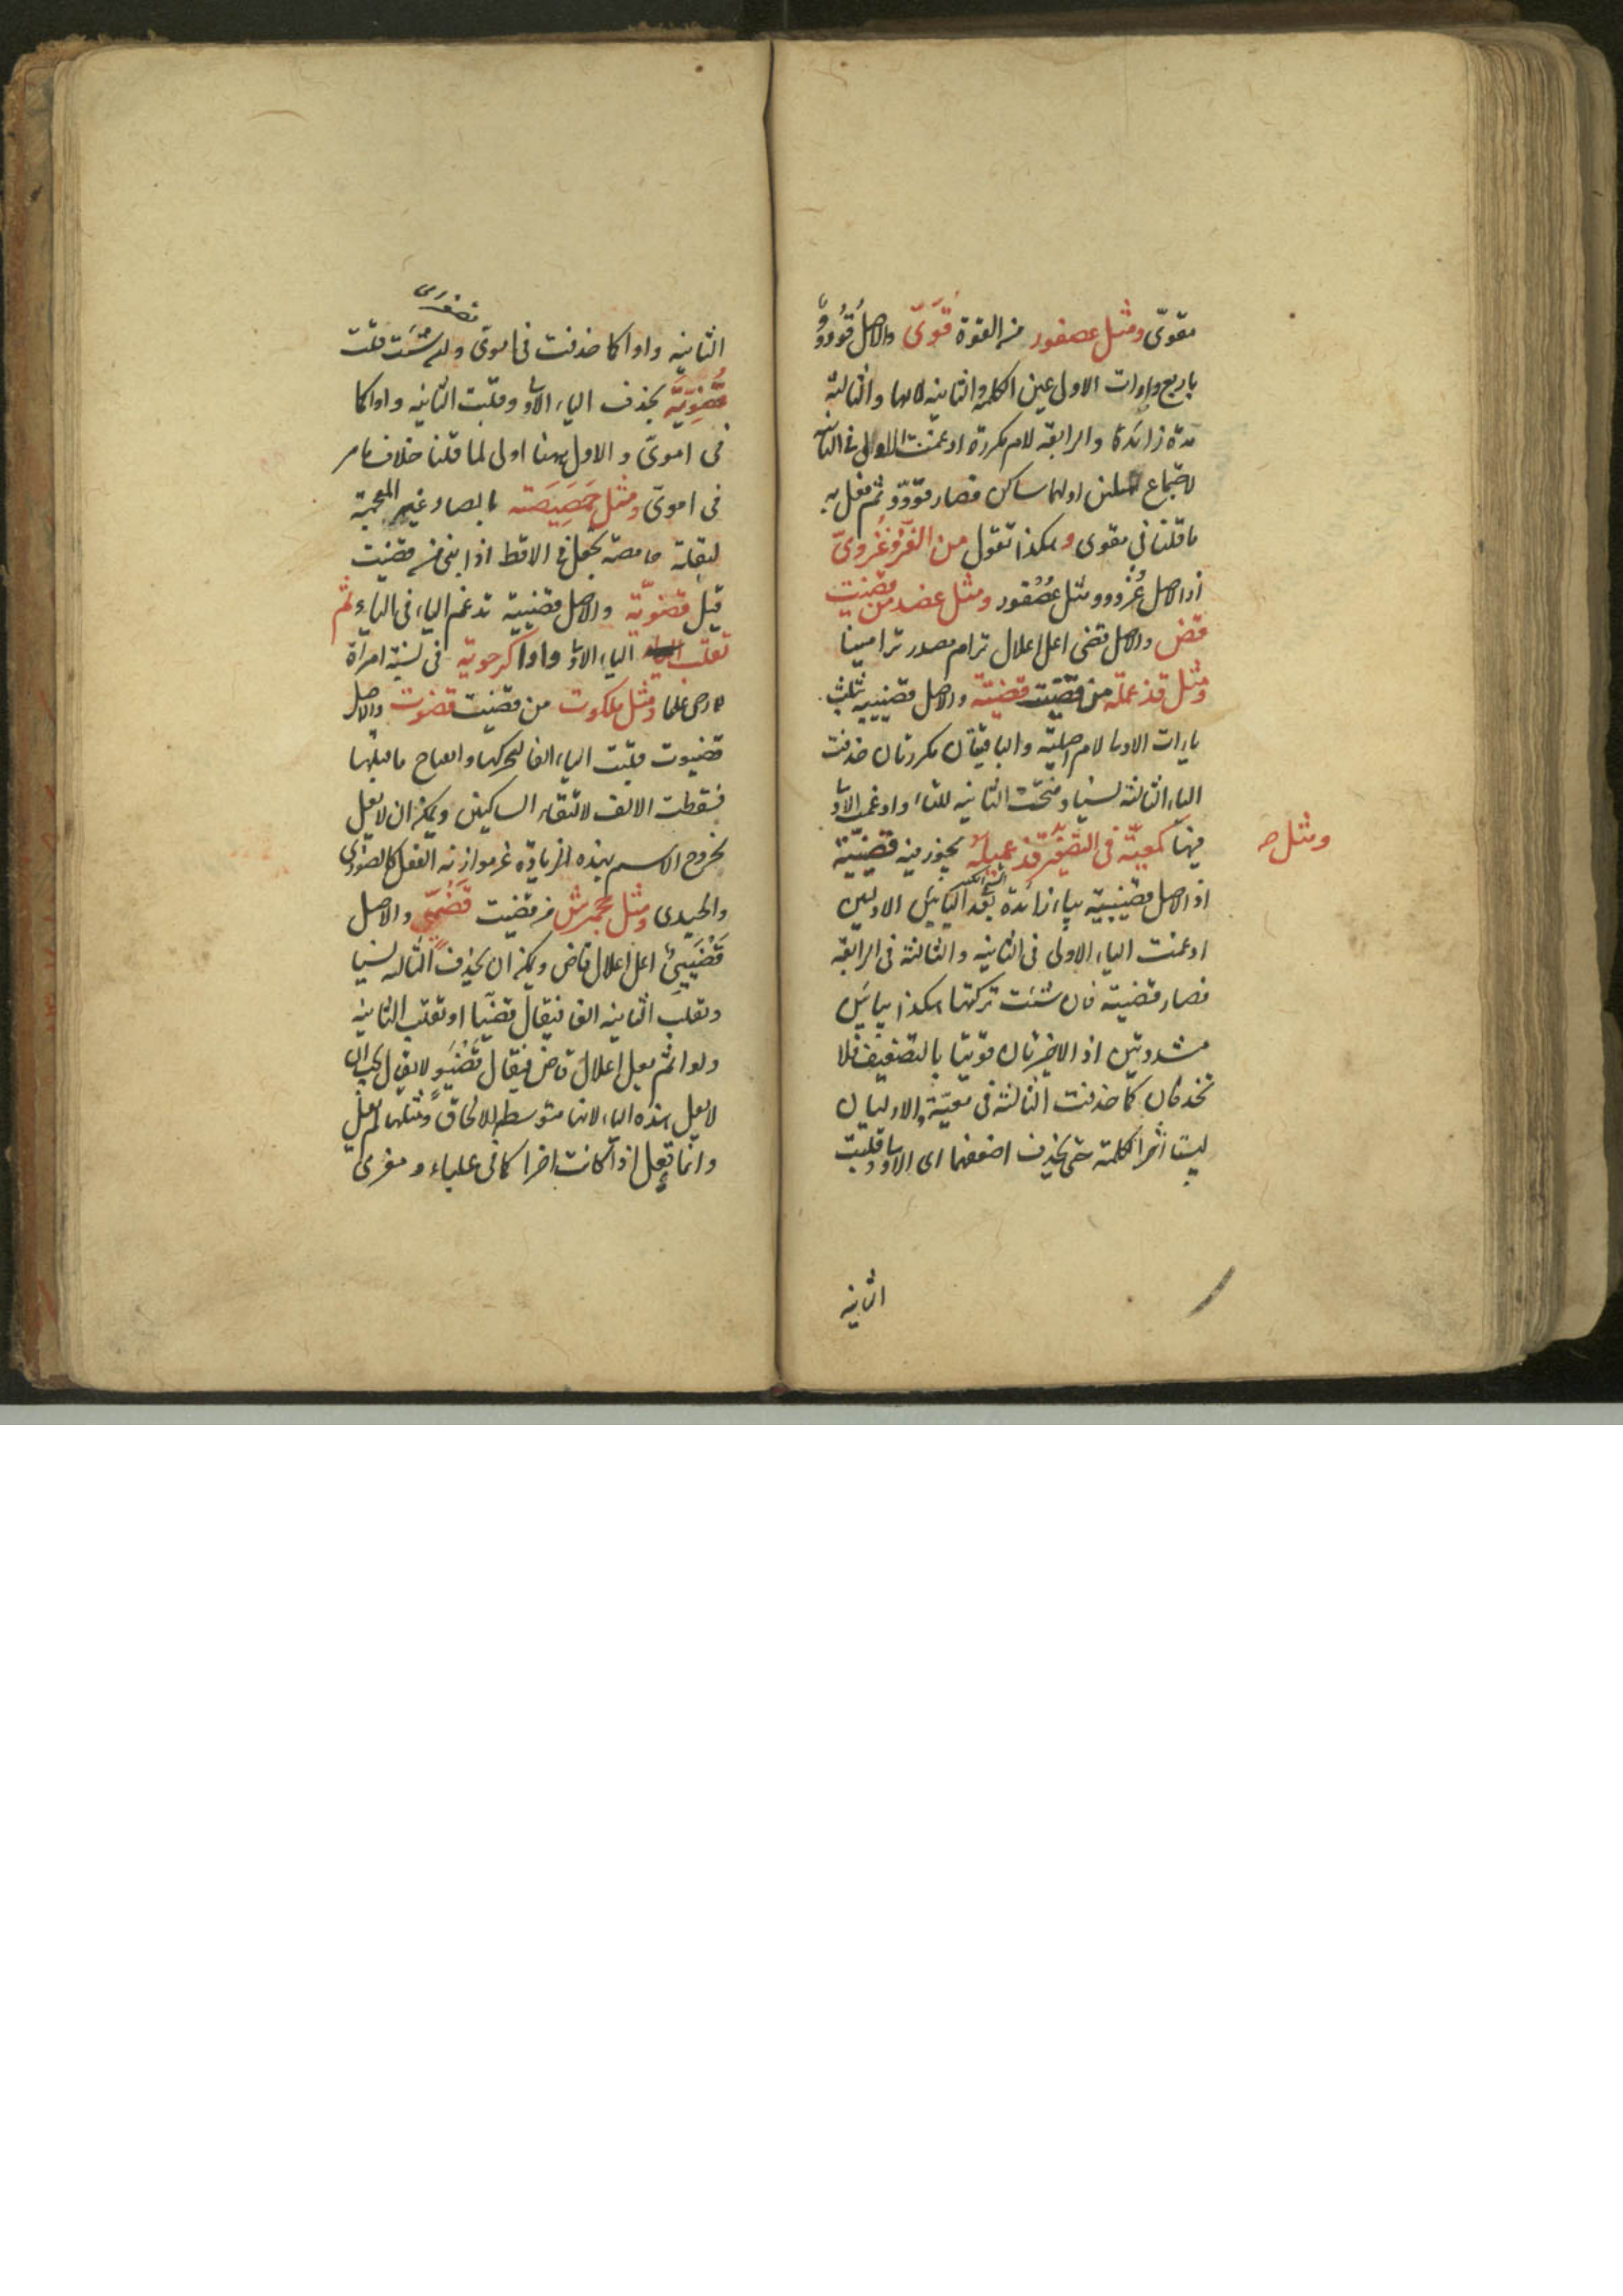 مقوىّ ومثل عصفور من القوة قُوَىّ والاصل قُوُووٌ
باربع واوات الاولى عين الكلمة والثانية لامها والثالثة
مدة زائدة والرابعة لام مكررة ادغمت الاولى فى الثانية
لاجتماع مثلين اولهما ساكن فصار قوّوّ ثم فعل به
ما قلنا فى مقوى وهكذا تقول من الغزو غُزوىّ
اذ الاصل غُزْووو مثل عُصْفور ومثل عضد من قضيت
قض والاصل قضى اعل اعلال ترام مصدر ترامينا
ومثل قذعملة من قضيت قضيّة والاصل قضييية بثلث
ياءات الاولى لام اصلية والباقيتان مكررتان حذفت
الياء الثالثة نسيا وفتحت الثانية للتاء وادغمت الاولى
فيها كمعيّة فى التصغير ومثل قذعميلة يجوز فيه قضيّية
اذ الاصل قضيييية بياء زائدة بعد اليائين الاوليين
ادغمت الياء الاولى فى الثانية والثالثة فى الرابعة
فصار قضيية فان شئت تركتها هكذا بيائين
مشددتين اذ الاخيرتان قويتا بالتضعيف فلا
تحذفان كما حذفت الثالثة فى معيّة والاوليان
ليستا آخر الكلمة حتى يحذف اضعفهما اى الاولى وقلبت
الثانية
الثانية واوا كما حذفت فى اموىّ وان شئت قلت
قُضَوِيَّة بحذف الياء الاولى وقلبت الثانية واوا كما
فى اموىّ والاول ههنا اولى لما قلنا خلاف ما مر
فى اموىّ ومثل حَمَصِيصَة بالصاد غير المعجمة
لبقلة حامضة تجعل فى الاقط اذا بنى من قضيت
قيل قضويّة والاصل قضيية تدغم الياء فى الياء ثم
تقلب الياء الاولى واوا كرحوية فى نسبة امرأة
لارحى علما ومثل ملكوت من قضيت قضوت والاصل
قضيوت قلبت الياء الفا لتحركها وانفتاح ما قبلها
فسقطت الالف لالتقاء الساكنين ويمكن ان لا يعل
لخروج الاسم بهذه الزيادة عن موازنة الفعل كالصورى
والحيدى ومثل جحمرش من قضيت قَضْىٍ والاصل
قَضْيَيِىٌ اعل اعلال قاض ويمكن ان يحذف الثالثة نسيا
وتقلب الثانية الفا فيقال قضيا او تقلب الثانية
واوا ثم يعل اعلال قاض فيقال قَضْيَوٍ لا يقال يجب ان
لا يعل هذه الياء لانها متوسطة للالحاق ومثلها لم يعل
وانما تعل اذا كانت اخرا كما فى علباء ومعزى